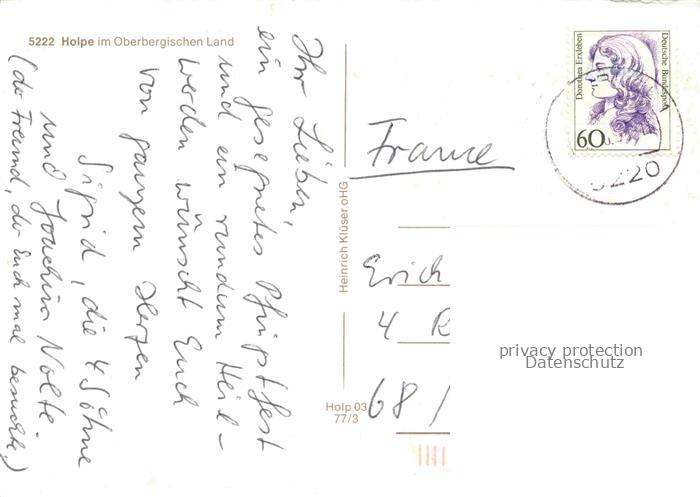 5222 Holpe im Oberbergischen Land
Ihr Lieben,
ein gesegnetes Pfingstfest
und ein rundum Heil-
werden wünscht Euch
von ganzem Herzen
Sigrid, die 4 Söhne
und Joachim Nolte.
(der Freund, der Euch mal besuchte.)
Heinrich Klüser oHG
Holp 03
77/3
Dorothea Erxleben
Deutsche Bundespost
60
5220
France
Erich
4 R
68/
privacy protection
Datenschutz